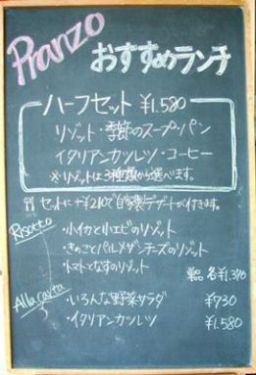 Pranzo
おすすめランチ
ハーフセット ¥1.580
リゾット・季節のスープ・パン
イタリアンカツレツ・コーヒー
※リゾットは3種類から選べます。
セットに+¥210で自家製デザートが付きます。
Risotto
・小イカと小エビのリゾット
・きのことパルメザンチーズのリゾット
・トマトとなすのリゾット
単品 各¥1,310
Alla carta
・いろんな野菜サラダ ¥730
・イタリアンカツレツ ¥1.580